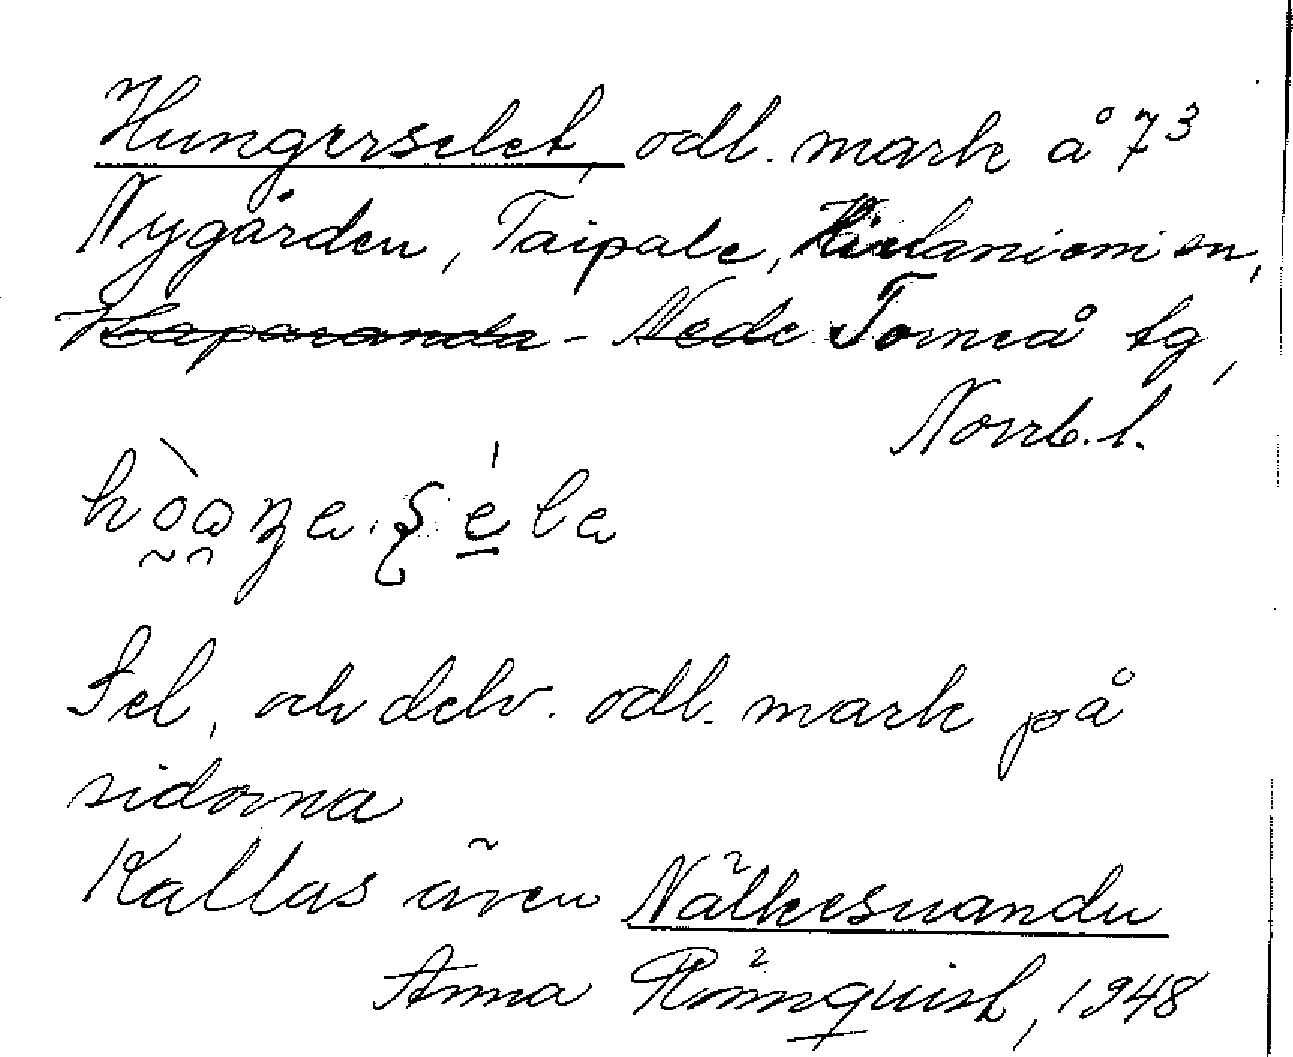 Hungerselet, odl. mark å 7³
Nygården, Taipale, Hietaniemi sn,
Haparanda - Nede Torneå tg,
Norrb. l.
Sel, och delv. odl. mark på
sidorna
Kallas även Nälkesuandu
Anna Rönnquist, 1948